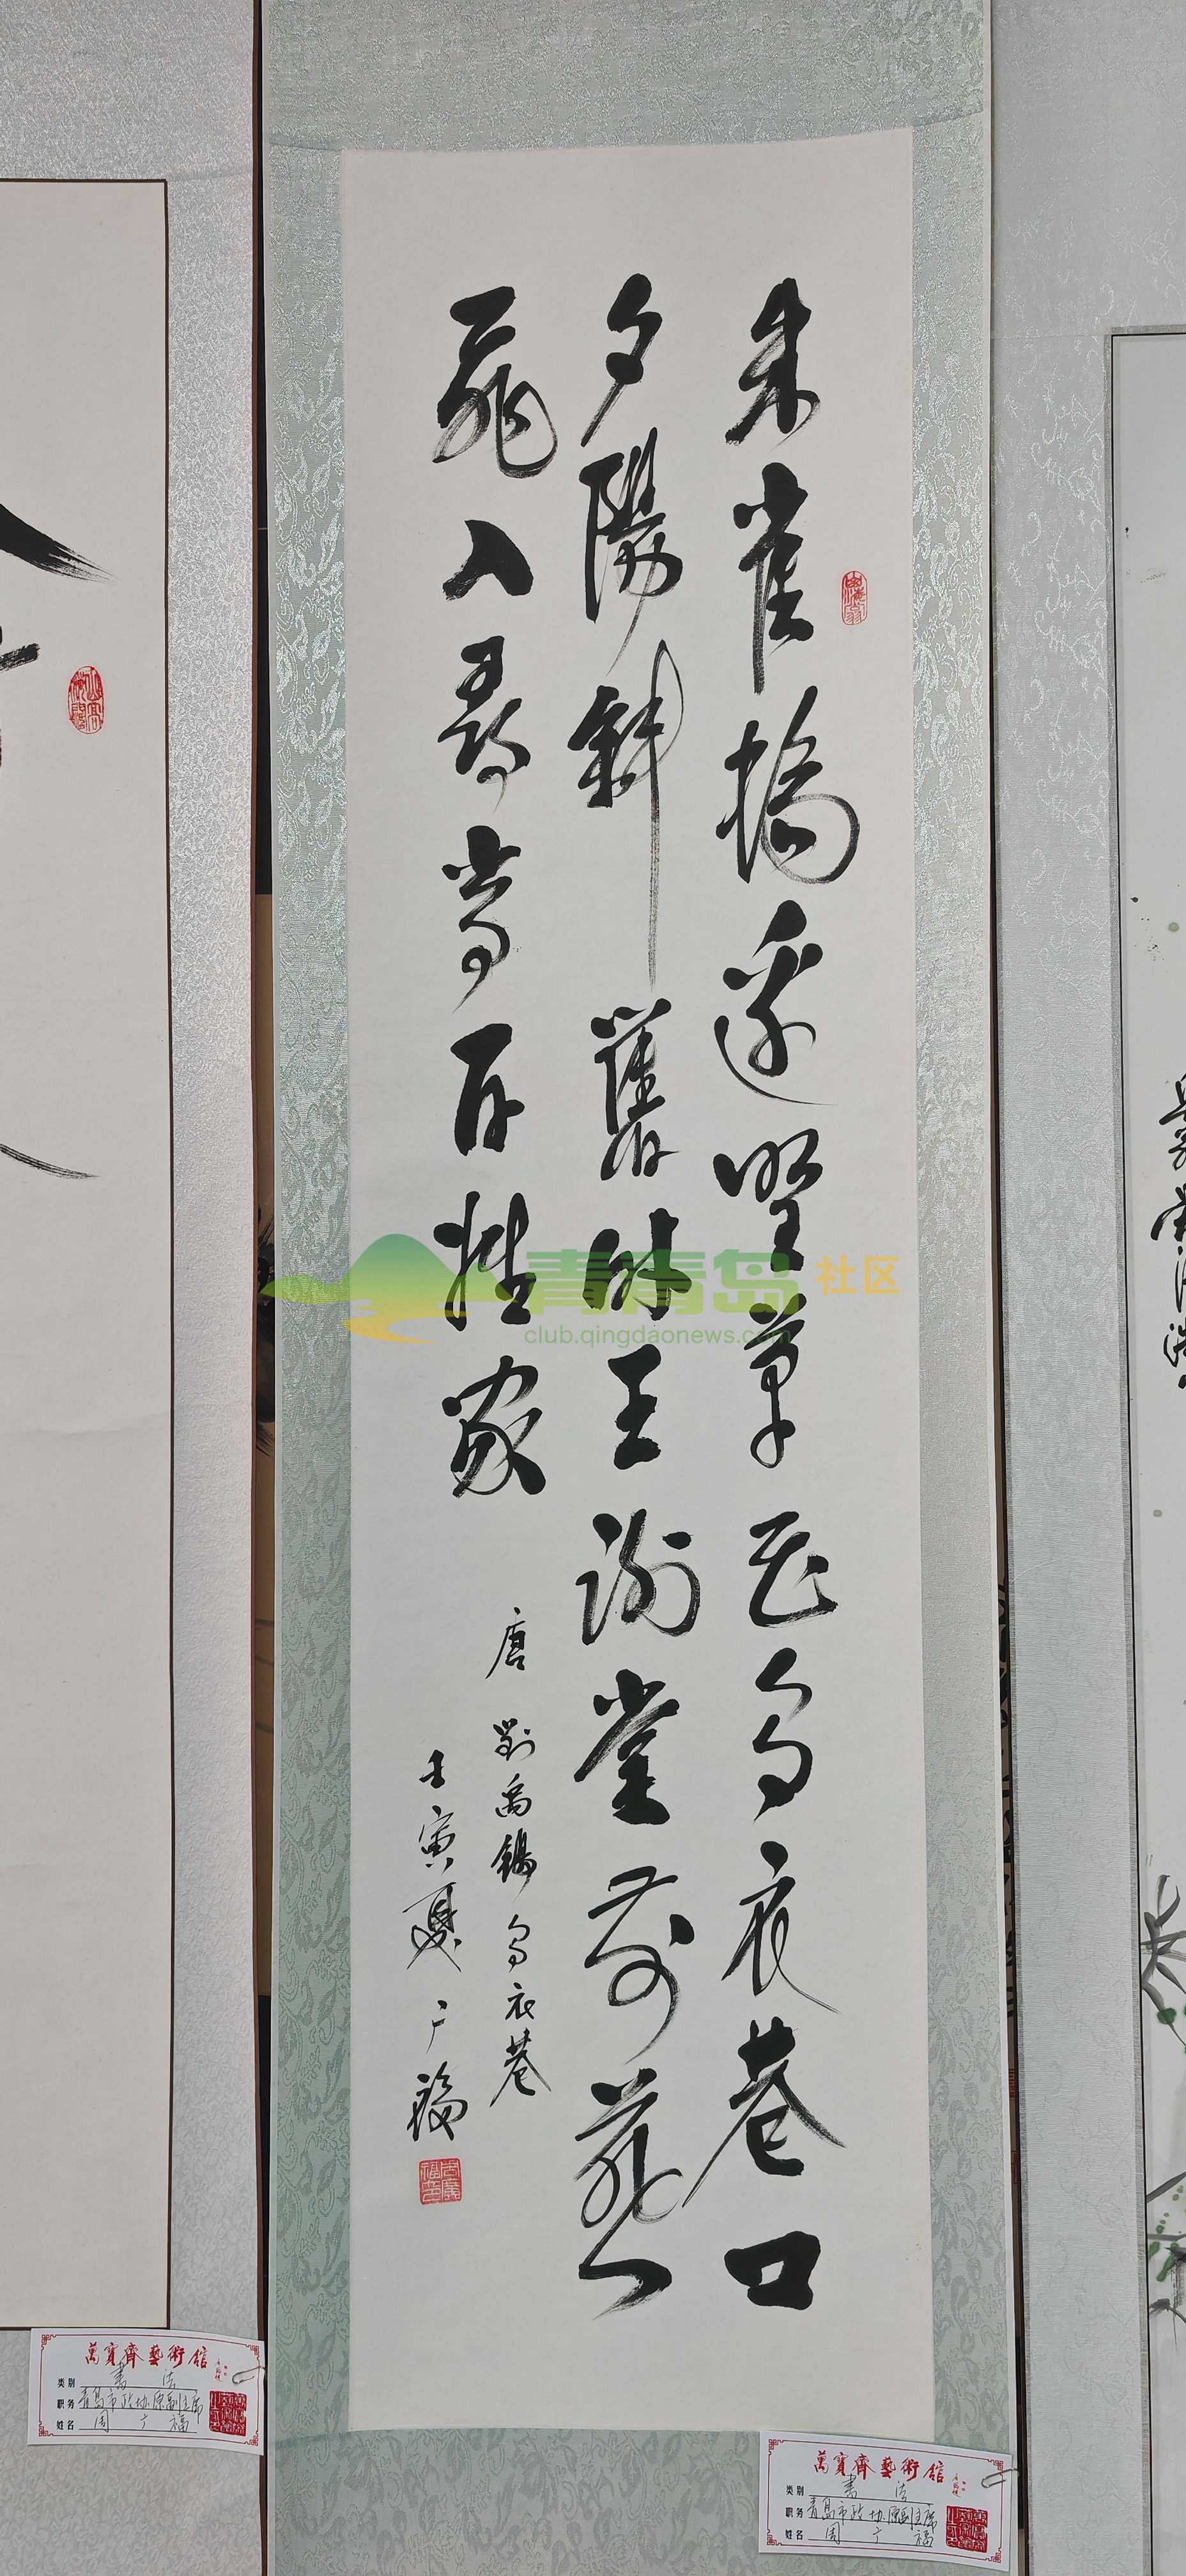 朱雀橋邊野草花烏衣巷口
夕陽斜舊時王謝堂前燕
飛入尋常百姓家
唐 劉禹錫 烏衣巷
壬寅夏 广福
周廣福印
青青岛社区
club.qingdaonews.com
萬寶齋藝術館
类别 書法
职务 青島市政协原副主席
姓名 周广福
萬寶齋藝術館
类别 書法
职务 青島市政协原副主席
姓名 周广福